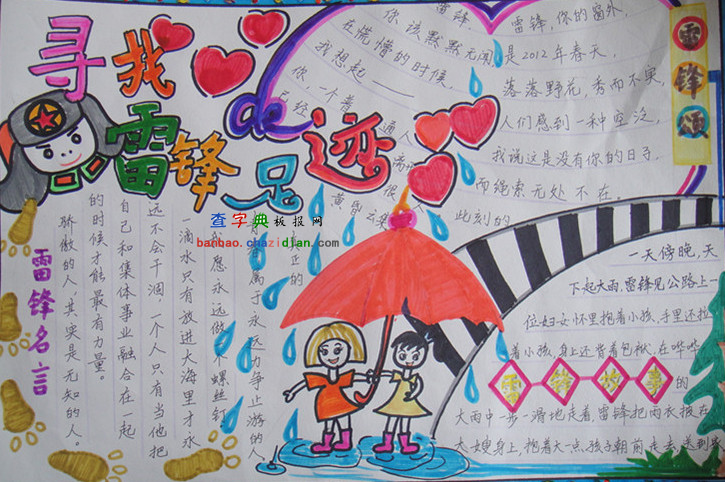 寻找
雷锋足迹
de
雷锋颂
雷锋，
你该默默无闻
在慌懵的时候，
我想起——
你一个着
已经
通人
满怀
很
黄昏
雷锋，你的窗外，
是2012年春天，
落落野花，秀而不実，
人们感到一种空泛，
我说这是没有你的日子，
而绝索无处不在。
此刻的
查字典板报网
banbao.chazidian.com
雷锋名言
青春属于永远力争上游的人。
我愿永远做个螺丝钉
一滴水只有放进大海里才永
远不会干涸，一个人只有当他把
自己和集体事业融合在一起
的时候才能最有力量。
骄傲的人，其实是无知的人。
一天傍晚，天
下起大雨，雷锋见公路上一
位妇女怀里抱着小孩，手里还拉
着小孩，身上还背着包袱，在哗哗
雷锋故事
的
大雨中一步一滑地走着，雷锋把雨衣披在
大嫂身上，抱着大一点孩子朝前走去，送到家